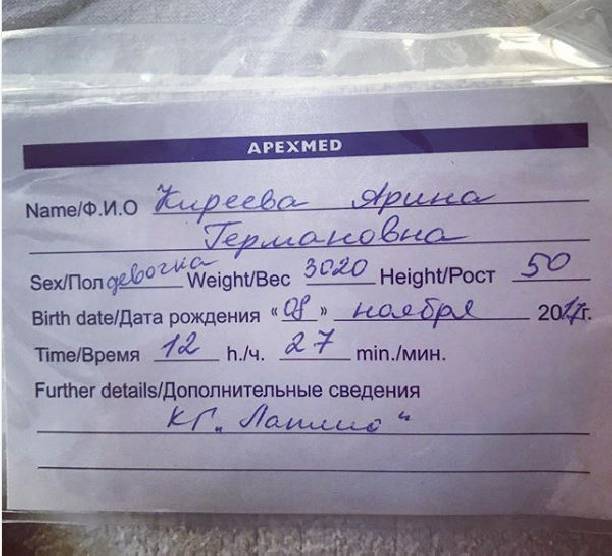 APEXMED
Name/Ф.И.О Киреева Ярина
Германовна
Sex/Пол девочка Weight/Вес 3020 Height/Рост 50
Birth date/Дата рождения «08» ноября 2017г.
Time/Время 12 h./ч. 27 min./мин.
Further details/Дополнительные сведения
КГ „Лапино“